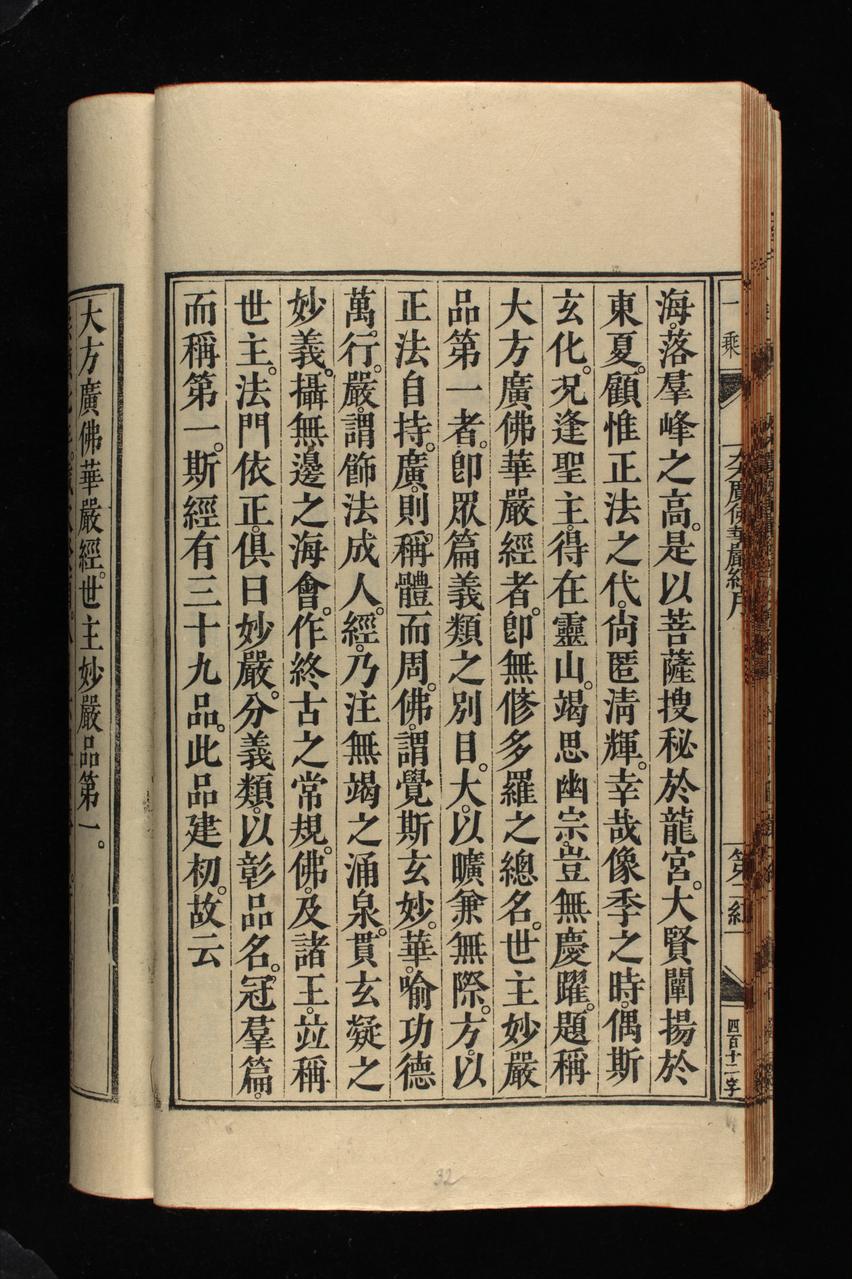 一乘
大方廣佛華嚴經序
第二紙
四百十二字
海。落羣峰之高。是以菩薩搜秘於龍宮。大賢闡揚於
東夏。顧惟正法之代。尙匿淸輝。幸哉像季之時。偶斯
玄化。况逢聖主。得在靈山。竭思幽宗。豈無慶躍。題稱
大方廣佛華嚴經者。卽無修多羅之總名。世主妙嚴
品第一者。卽眾篇義類之別目。大。以曠兼無際。方。以
正法自持。廣。則稱體而周。佛。謂覺斯玄妙。華。喻功德
萬行。嚴。謂飾法成人。經。乃注無竭之涌泉。貫玄凝之
妙義。攝無邊之海會。作終古之常規。佛。及諸王。竝稱
世主。法門依正。俱曰妙嚴。分義類。以彰品名。冠羣篇。
而稱第一。斯經有三十九品。此品建初。故云
大方廣佛華嚴經。世主妙嚴品第一。